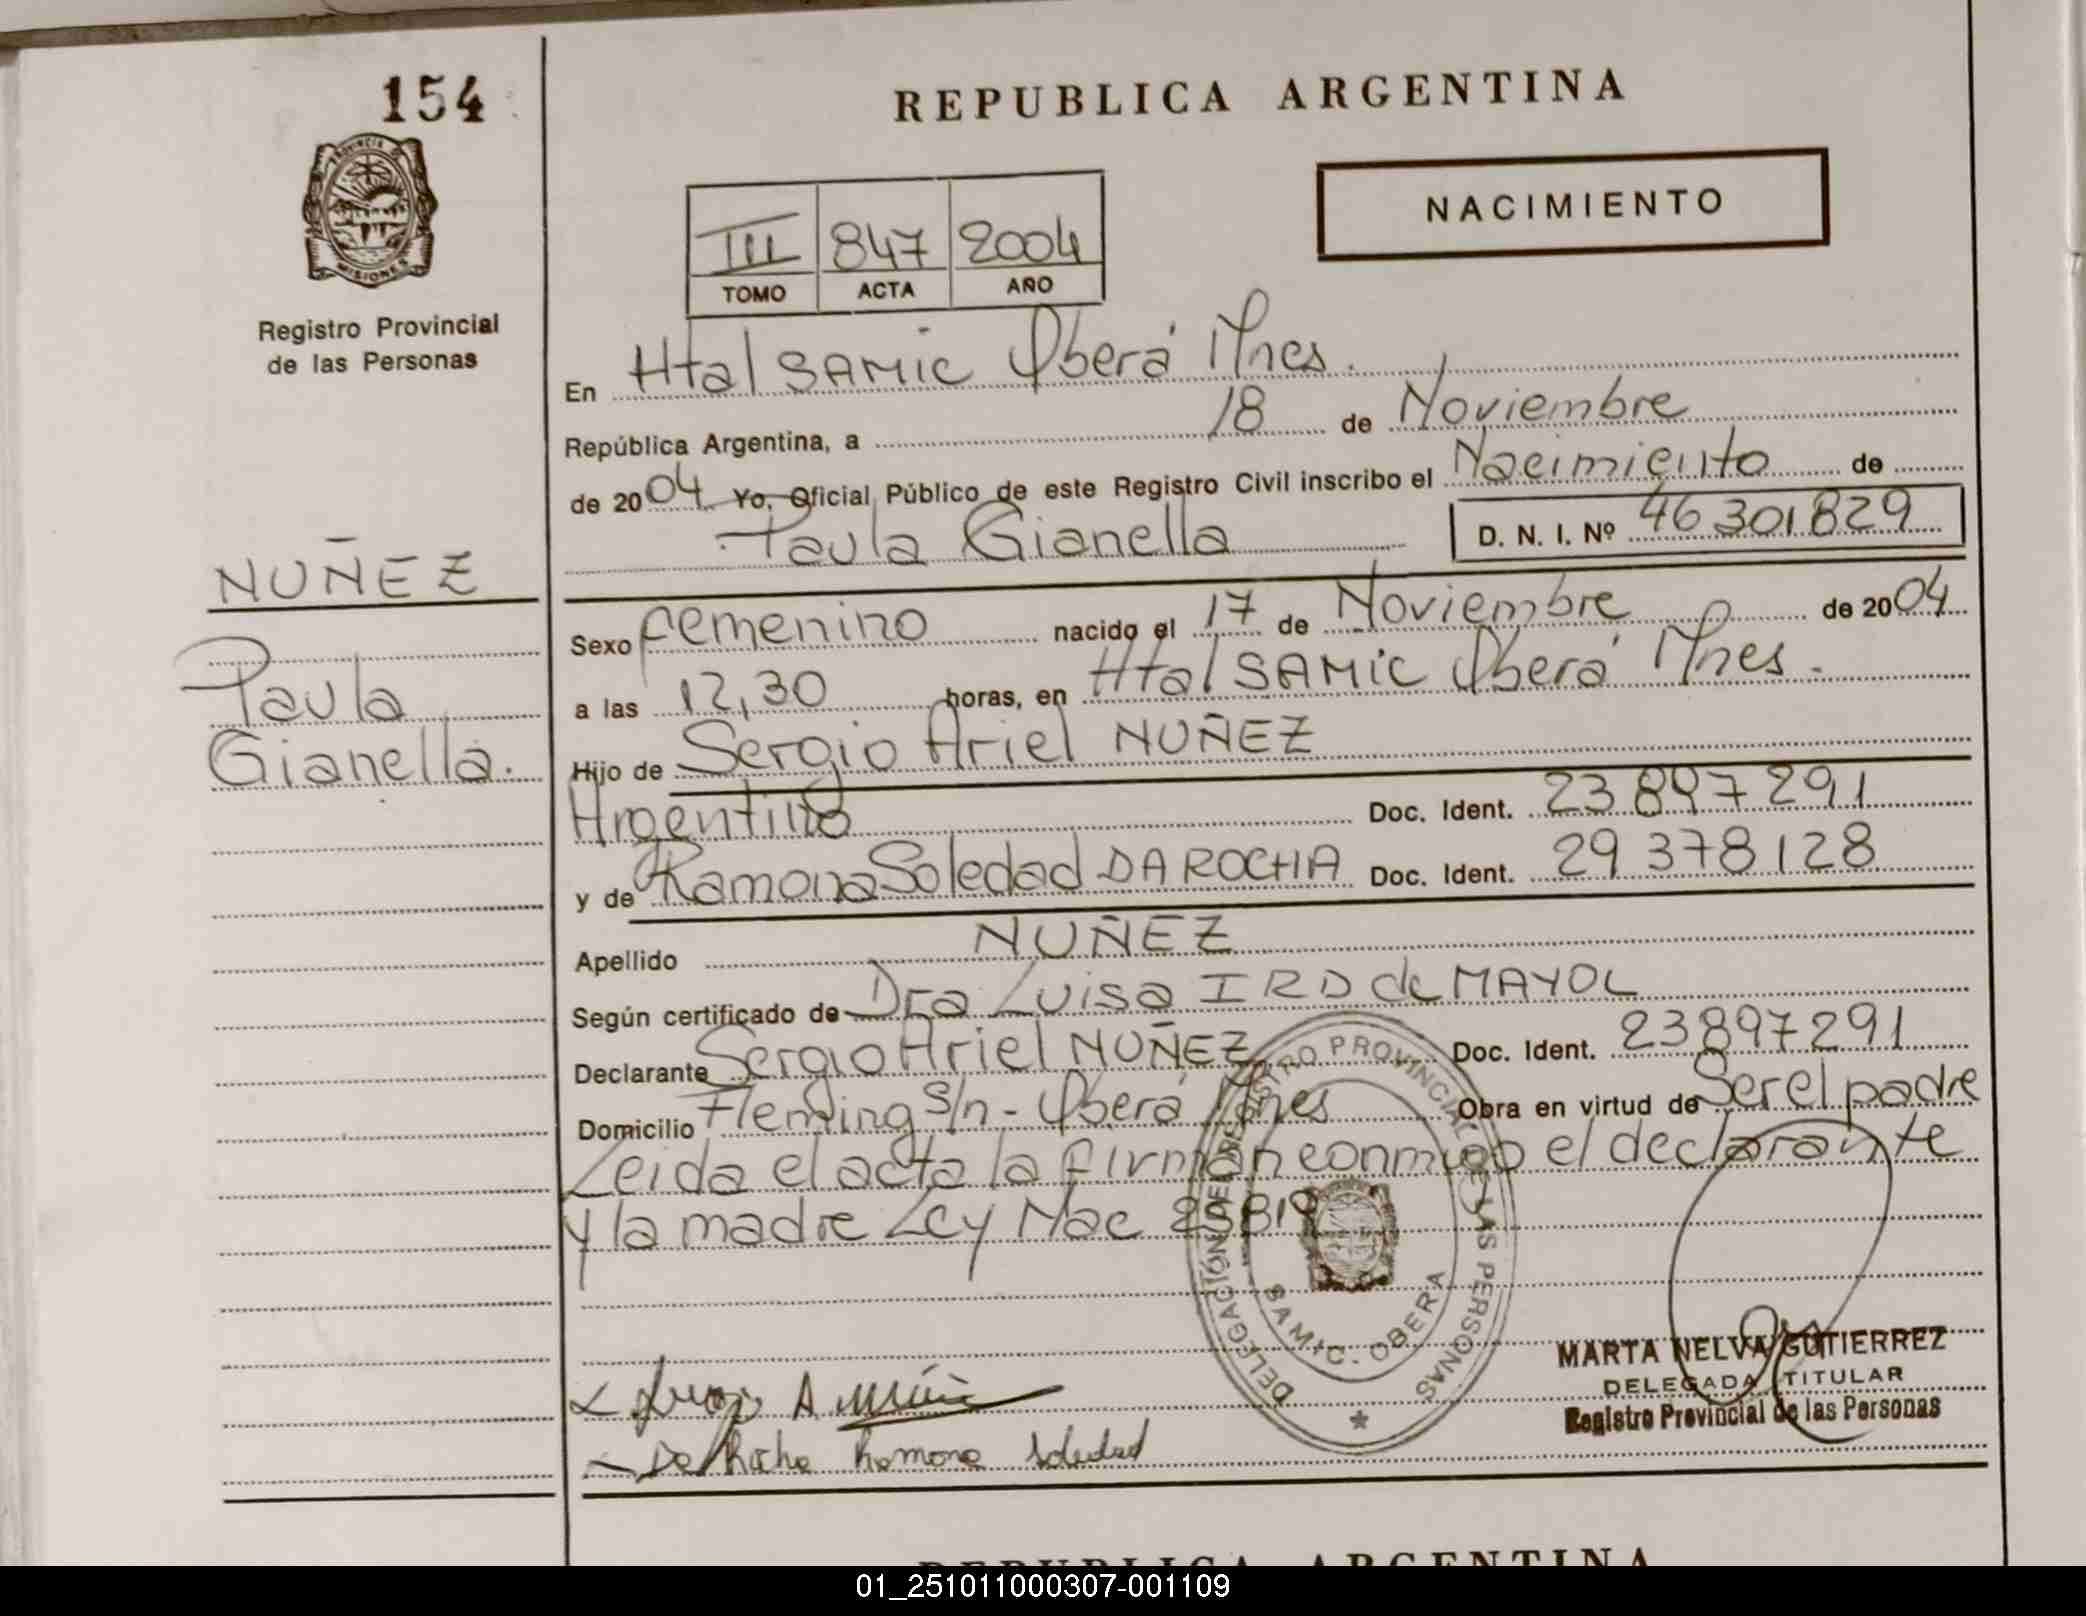 154
REPUBLICA ARGENTINA
PROVINCIA DE
MISIONES
Registro Provincial
de las Personas
NACIMIENTO
III 847 2004
TOMO ACTA AÑO
En Htal SAMIC Oberá Mnes.
República Argentina, a 18 de Noviembre
de 2004 Yo, Oficial Público de este Registro Civil inscribo el Nacimiento de
Paula Gianella D. N. I. Nº 46301829
NUÑEZ
Paula
Gianella.
Sexo femenino nacido el 17 de Noviembre de 2004
a las 12,30 horas, en Htal SAMIC Oberá Mnes.
Hijo de Sergio Ariel NUÑEZ
Argentino Doc. Ident. 23897291
y de Ramona Soledad DA ROCHA Doc. Ident. 29378128
Apellido NUÑEZ
Según certificado de Dra Luisa IRD de MAYOL
Declarante Sergio Ariel NUÑEZ Doc. Ident. 23897291
Domicilio Fleming S/n - Oberá Mnes Obra en virtud de Ser el padre
Leida el acta la firman conmigo el declarante
y la madre Ley Nac
DELEGACIÓN DEL REGISTRO PROVINCIAL DE LAS PERSONAS
SAMIC. OBERA
MARTA NELVA GUTIERREZ
DELEGADA TITULAR
Registro Provincial de las Personas
Da Rocha Ramona Soledad
REPUBLICA ARGENTINA
01_251011000307-001109